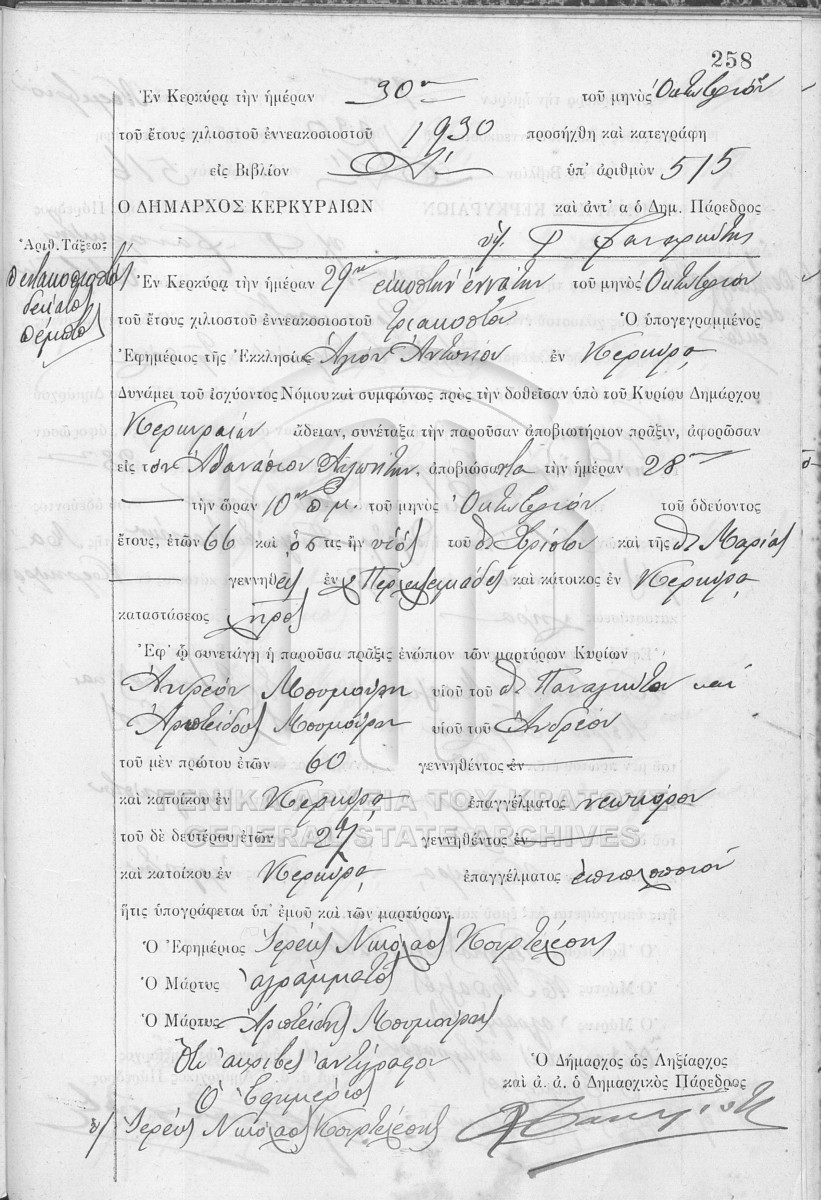 258
Ἐν Κερκύρᾳ τὴν ἡμέραν 30ην τοῦ μηνὸς Ὀκτωβρίου
τοῦ ἔτους χιλιοστοῦ ἐννεακοσιοστοῦ 1930 προσήχθη καὶ κατεγράφη
εἰς Βιβλίον ὑπ' ἀριθμὸν 515
Ο ΔΗΜΑΡΧΟΣ ΚΕΡΚΥΡΑΙΩΝ καὶ ἀντ' α ὁ Δημ. Πάρεδρος
Ἀριθ. Τάξεως
πεντακοσιοστὸς
δέκατος
πέμπτος
Ἐν Κερκύρᾳ τὴν ἡμέραν 29ην εἰκοστὴν ἐννάτην τοῦ μηνὸς Ὀκτωβρίου
τοῦ ἔτους χιλιοστοῦ ἐννεακοσιοστοῦ τριακοστοῦ Ὁ ὑπογεγραμμένος
Ἐφημέριος τῆς Ἐκκλησίας Ἁγίου Ἀντωνίου ἐν Κερκύρᾳ
Δυνάμει τοῦ ἰσχύοντος Νόμου καὶ συμφώνως πρὸς τὴν δοθεῖσαν ὑπὸ τοῦ Κυρίου Δημάρχου
Κερκυραίων ἄδειαν, συνέταξα τὴν παροῦσαν ἀποβιωτήριον πρᾶξιν, ἀφορῶσαν
εἰς τὸν Ἀθανάσιον ἀποβιώσαντα τὴν ἡμέραν 28ην
τὴν ὥραν 10ην π.μ. τοῦ μηνὸς Ὀκτωβρίου τοῦ ὁδεύοντος
ἔτους, ἐτῶν 66 καὶ ὅστις ἦν υἱὸς τοῦ Χρίστου καὶ τῆς Μαρίας
γεννηθεὶς ἐν καὶ κάτοικος ἐν Κερκύρᾳ
καταστάσεως χῆρος
Ἐφ' ᾧ συνετάγη ἡ παροῦσα πρᾶξις ἐνώπιον τῶν μαρτύρων Κυρίων
Ἀνδρέου Μπουμπούρη υἱοῦ τοῦ Παναγιώτου καὶ
Ἀριστείδους Μπουμπούρη υἱοῦ τοῦ Ἀνδρέου
τοῦ μὲν πρώτου ἐτῶν 60 γεννηθέντος ἐν
καὶ κατοίκου ἐν Κερκύρᾳ ἐπαγγέλματος νεωκόρου
ΓΕΝΙΚΑ ΑΡΧΕΙΑ ΤΟΥ ΚΡΑΤΟΥΣ
τοῦ δὲ δευτέρου ἐτῶν 27 γεννηθέντος ἐν
GENERAL STATE ARCHIVES
καὶ κατοίκου ἐν Κερκύρᾳ ἐπαγγέλματος ἐπιπλοποιοῦ
ἥτις ὑπογράφεται ὑπ' ἐμοῦ καὶ τῶν μαρτύρων.
Ὁ Ἐφημέριος Ἱερεὺς Νικόλαος Κουρτελέσης
Ὁ Μάρτυς ἀγράμματος
Ὁ Μάρτυς Ἀριστείδης Μπουμπούρης
Ὅτι ἀκριβὲς ἀντίγραφον
Ὁ Ἐφημέριος
Ἱερεὺς Νικόλαος Κουρτελέσης
Ὁ Δήμαρχος ὡς Ληξίαρχος
καὶ ἀ. ἀ. ὁ Δημαρχικὸς Πάρεδρος